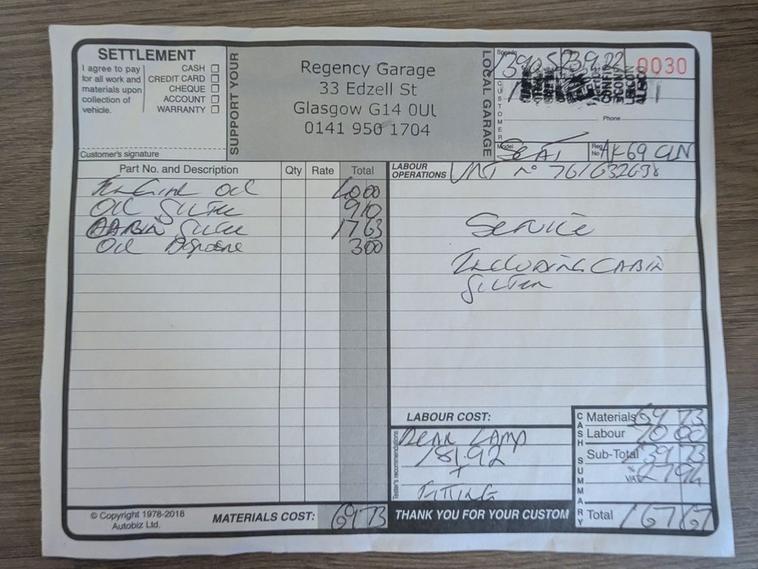 SETTLEMENT
I agree to pay for all work and materials upon collection of vehicle.
CASH
CREDIT CARD
CHEQUE
ACCOUNT
WARRANTY
Customer's signature
SUPPORT YOUR
Regency Garage
33 Edzell St
Glasgow G14 0UL
0141 950 1704
LOCAL GARAGE
0030
CUSTOMER
Phone
Model SEAT Reg No AK69 CLN
Part No. and Description Qty Rate Total
OIL
OIL FILTER 910
CABIN FILTER 1763
OIL DISPOSAL 300
LABOUR OPERATIONS VAT No 761632638
SERVICE
INCLUDING CABIN
FILTER
LABOUR COST:
Tester's recommendations
REAR LAMP
181.92
+
FITTING
CASH SUMMARY
Materials 69 73
Labour 70 00
Sub-Total 139 73
VAT 27 94
Total 167 67
© Copyright 1978-2018
Autobiz Ltd.
MATERIALS COST: 69 73
THANK YOU FOR YOUR CUSTOM